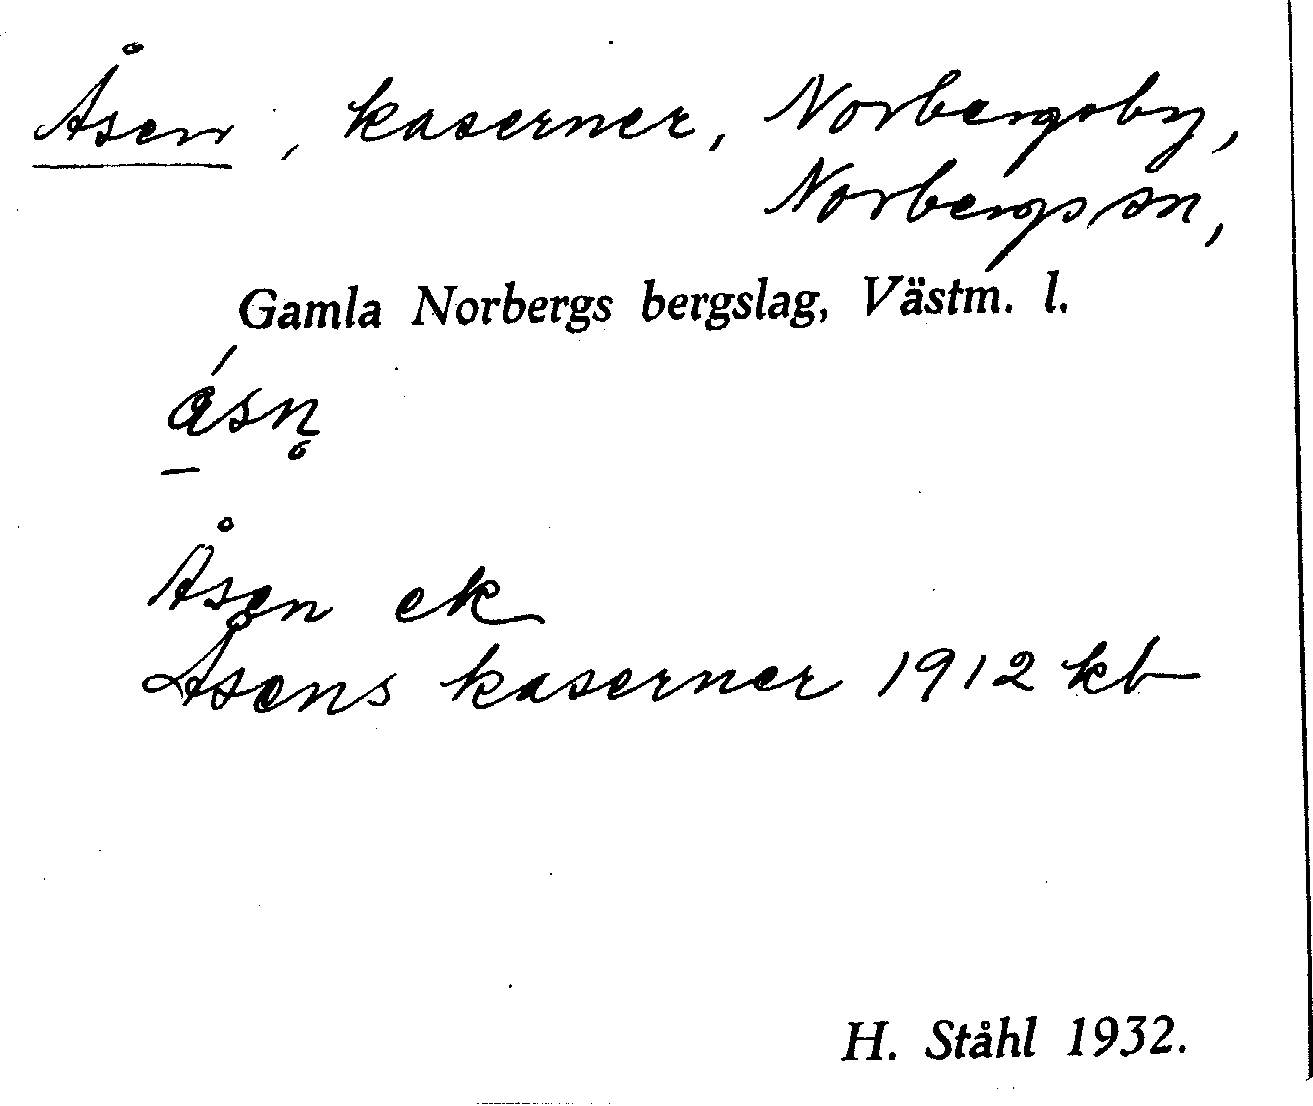 Åsen, kaserner, Norbergsby,
Norbergs sn,
Gamla Norbergs bergslag, Västm. l.
Åsen ek
Åsens kaserner 1912 kb
H. Ståhl 1932.